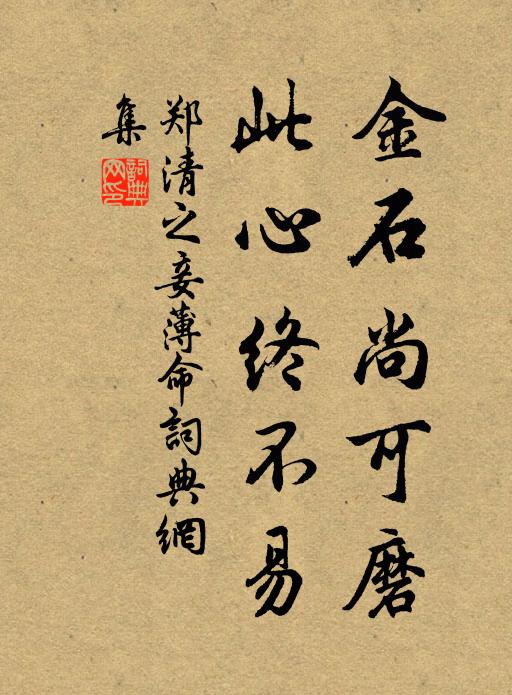 金石尚可磨
此心终不易
郑清之妾薄命詞典網
集
詞典
网印